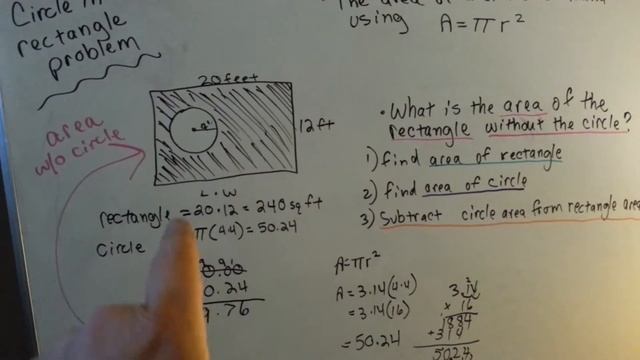 Circle in
rectangle
problem
using A = πr²
20 feet
12 ft
4'
area
w/o circle
L · W
rectangle = 20 · 12 = 240 sq ft
circle π(4·4) = 50.24
0.24
9.76
• What is the area of the
rectangle without the circle?
1) find area of rectangle
2) find area of circle
3) Subtract circle area from rectangle area
A = πr²
A = 3.14(4·4)
= 3.14(16)
= 50.24
3.14
× 16
1884
+ 314
5024